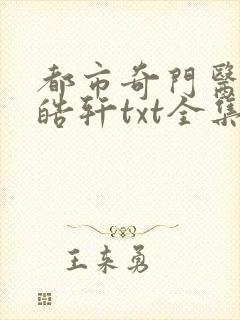 都市奇門醫
皓轩txt全集
王来勇